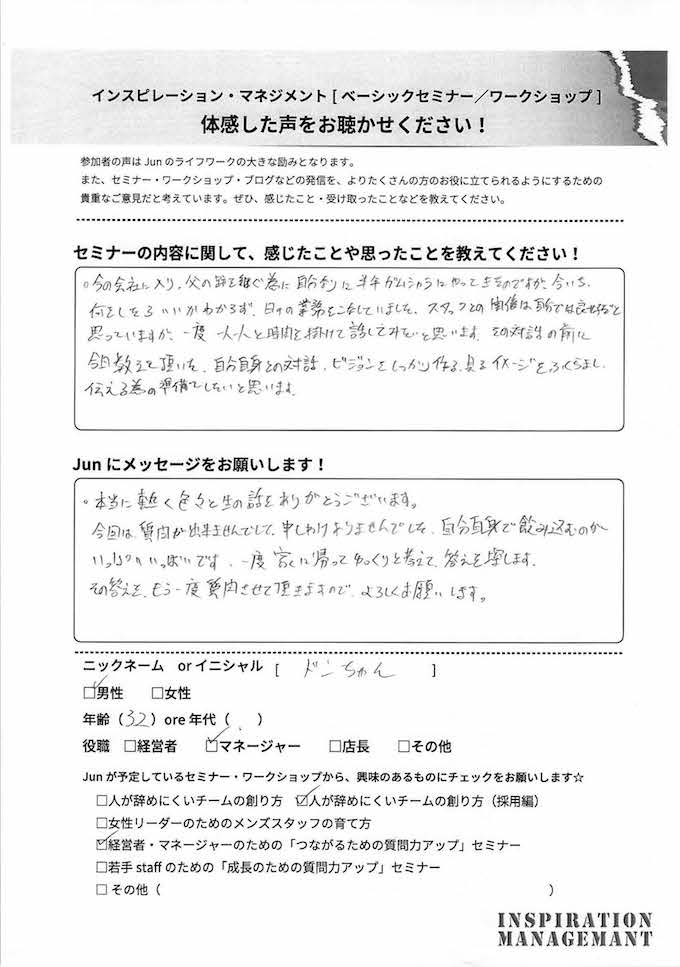 インスピレーション・マネジメント [ ベーシックセミナー／ワークショップ ]
体感した声をお聴かせください！
参加者の声は Jun のライフワークの大きな励みとなります。
また、セミナー・ワークショップ・ブログなどの発信を、よりたくさんの方のお役に立てられるようにするための
貴重なご意見だと考えています。ぜひ、感じたこと・受け取ったことなどを教えてください。
セミナーの内容に関して、感じたことや思ったことを教えてください！
。今の会社に入り、父の跡を継ぐ為に自分なりに半年ガムシャラにやってきたのですが、今いち、
何をしたらいいかわからず、日々の業務をこなしていました。スタッフとの関係は自分では良好だと
思っていますが、一度 一人一人と時間を掛けて話してみたいと思います。その対話の前に
今日教えて頂いた、自分自身との対話、ビジョンをしっかり作る、見る イメージをふくらまし、
伝える為の準備をしたいと思います。
Jun にメッセージをお願いします！
。本当に熱く色々と生の話をありがとうございます。
今回は、質問が出来ませんでして、申しわけありませんでした。自分自身で飲み込むのが
いっぱいいっぱいです。一度 家に帰ってゆっくりと考えて、答えを探します。
その答えを、もう一度質問させて頂きますので、よろしくお願いします。
ニックネーム or イニシャル [ ドンちゃん ]
☑男性 □女性
年齢（32）ore 年代（ ）
役職 □経営者 ☑マネージャー □店長 □その他
Jun が予定しているセミナー・ワークショップから、興味のあるものにチェックをお願いします☆
□人が辞めにくいチームの創り方 ☑人が辞めにくいチームの創り方（採用編）
□女性リーダーのためのメンズスタッフの育て方
☑経営者・マネージャーのための「つながるための質問力アップ」セミナー
□若手 staff のための「成長のための質問力アップ」セミナー
□ その他（ ）
INSPIRATION
MANAGEMANT